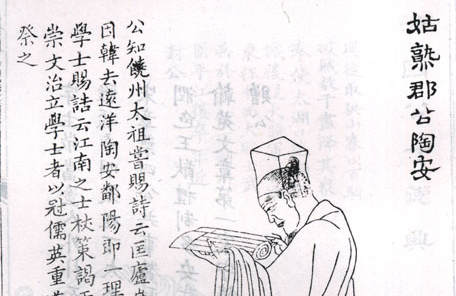 姑熟郡公陶安
公知饒州太祖嘗賜詩云匡廬
因韓去遠洋陶安鄱陽即一理
學士賜誥云江南之士杖策謁
崇文治立學士者以冠儒英重
祭之